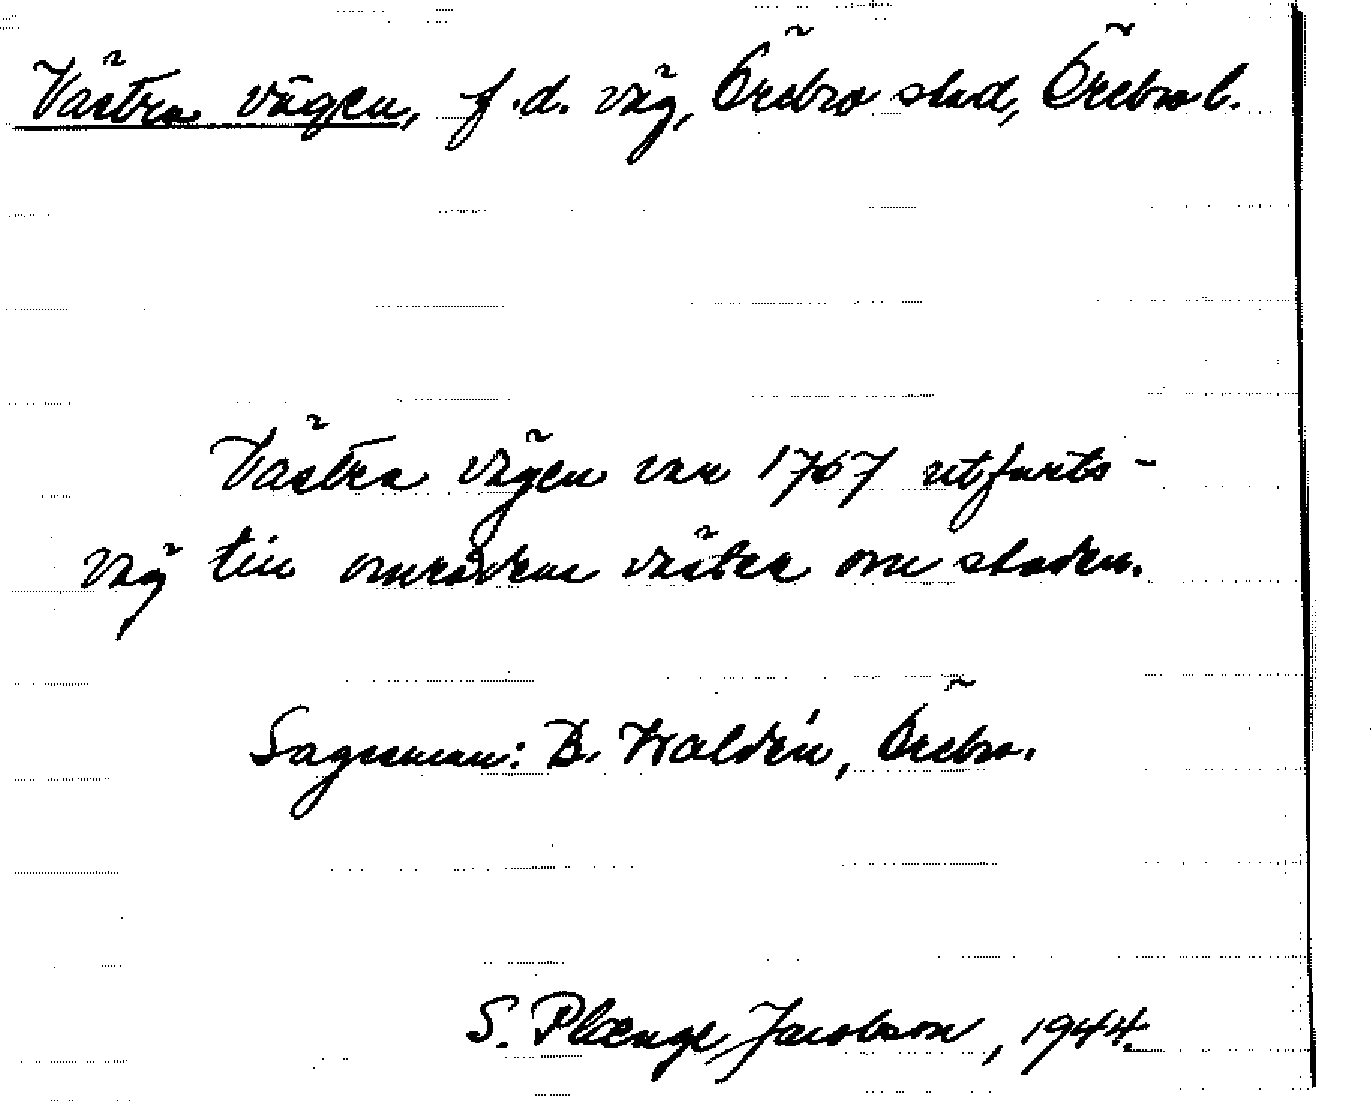 Västra vägen, f.d. väg, Örebro stad, Örebro l.
Västra vägen var 1767 utfarts-
väg till områdena väster om staden.
Sagesman: B. Waldén, Örebro.
S. Plœnge Jacobson, 1944.